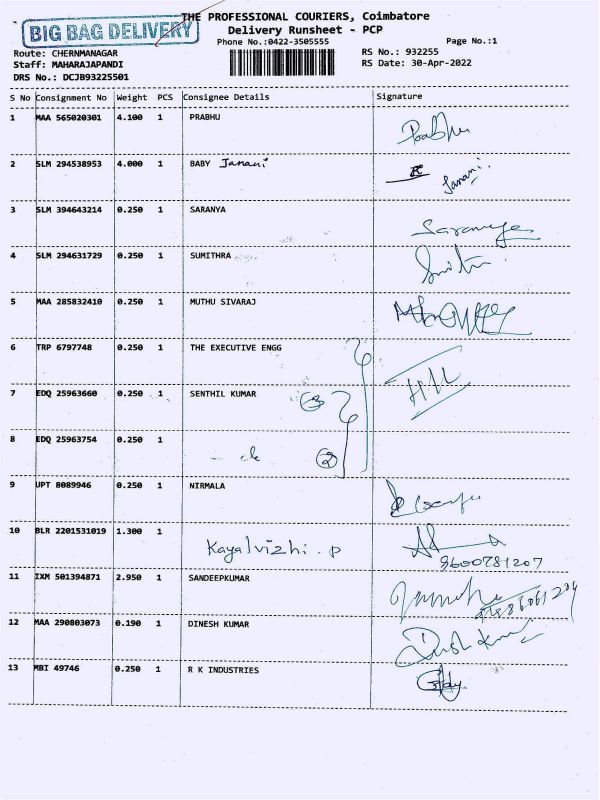 THE PROFESSIONAL COURIERS, Coimbatore
BIG BAG DELIVERY
Delivery Runsheet - PCP
Phone No.:0422-3505555
Page No.:1
Route: CHERNMANAGAR
RS No.: 932255
Staff: MAHARAJAPANDI
RS Date: 30-Apr-2022
DRS No.: DCJB93225501
S No Consignment No Weight PCS Consignee Details Signature
1 MAA 565020301 4.100 1 PRABHU Prabhu
2 SLM 294538953 4.000 1 BABY Janani Janani
3 SLM 394643214 0.250 1 SARANYA Saranya
4 SLM 294631729 0.250 1 SUMITHRA
5 MAA 285832410 0.250 1 MUTHU SIVARAJ
6 TRP 6797748 0.250 1 THE EXECUTIVE ENGG
7 EDQ 25963660 0.250 1 SENTHIL KUMAR 3
8 EDQ 25963754 0.250 1 2
9 UPT 8089946 0.250 1 NIRMALA
10 BLR 2201531019 1.300 1 Kayalvizhi.p
9600781207
11 IXM 501394871 2.950 1 SANDEEPKUMAR
12 MAA 290803073 0.190 1 DINESH KUMAR Dinesh Kumar
13 MBI 49746 0.250 1 R K INDUSTRIES